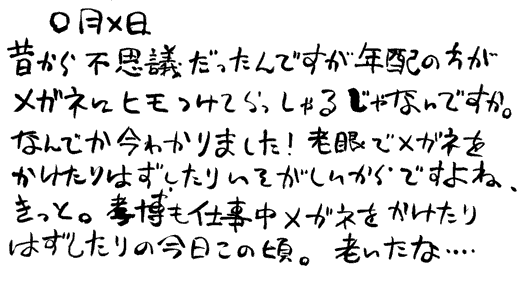 〇月×日
昔から不思議だったんですが年配の方が
メガネにヒモつけてらっしゃるじゃないですか。
なんでか今わかりました！老眼でメガネを
かけたりはずしたりいそがしいからですよね、
きっと。孝博も仕事中メガネをかけたり
はずしたりの今日この頃。老いたな‥‥